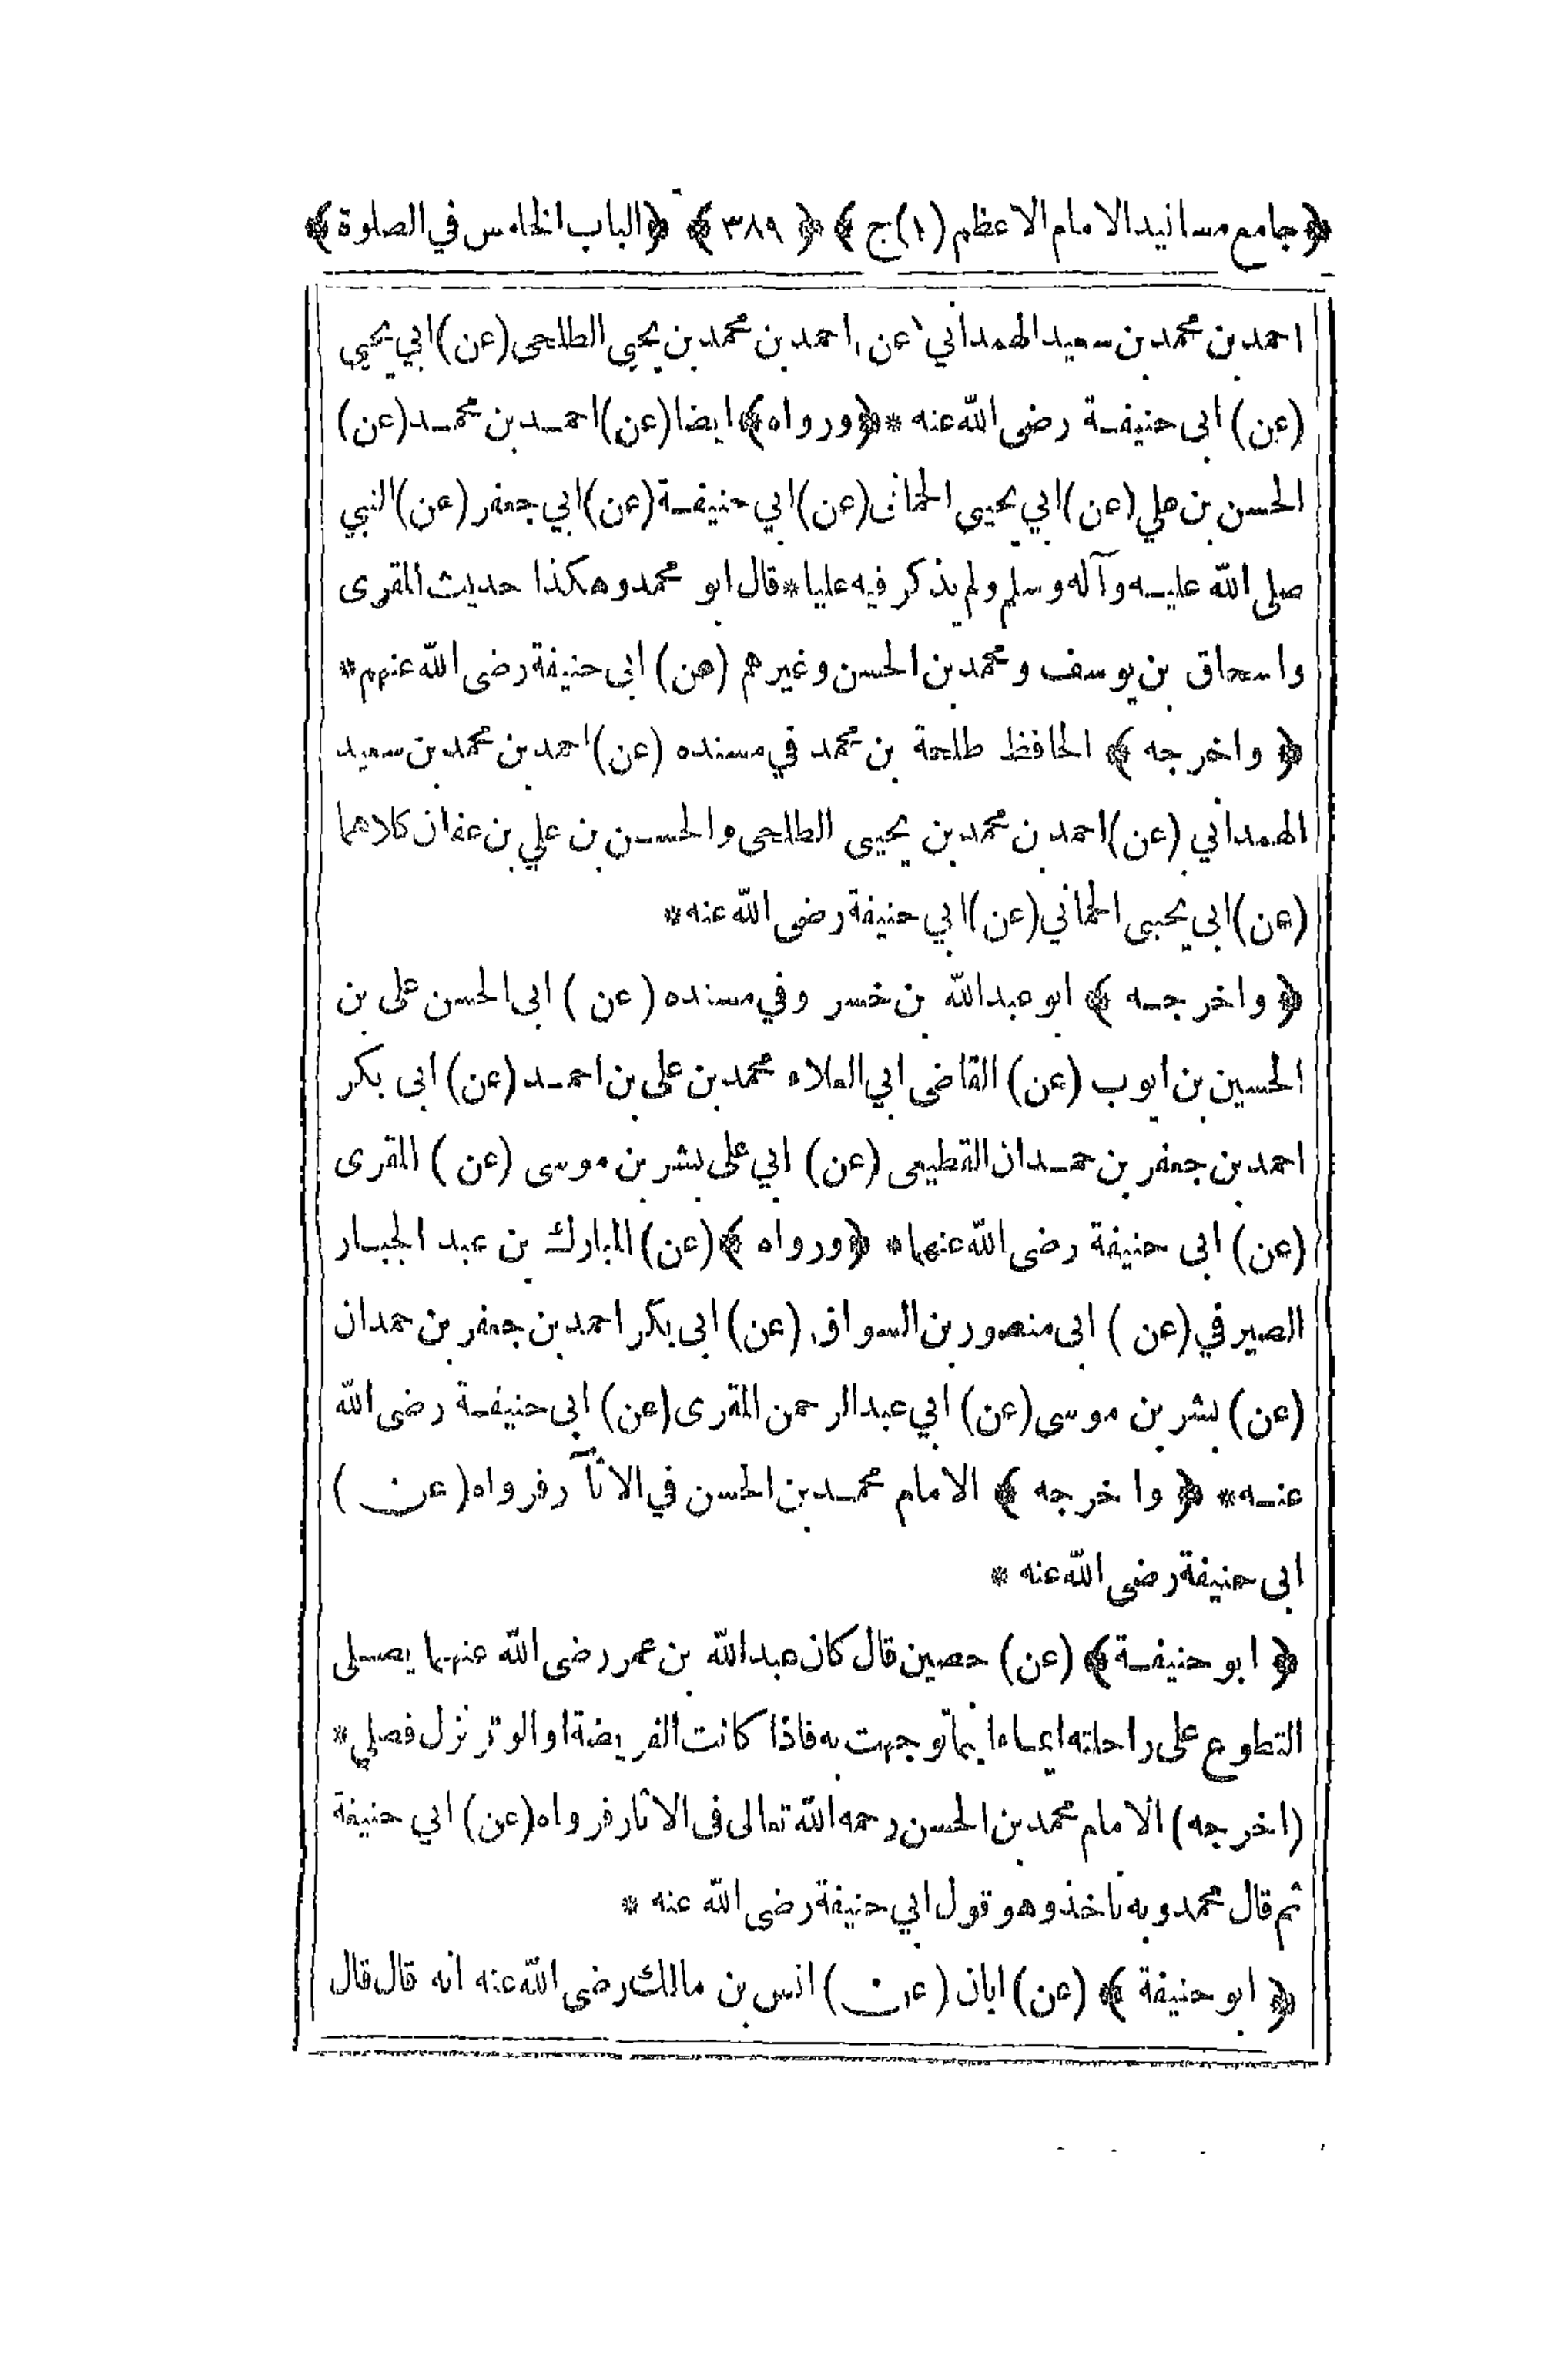 ﴿جامع مسانيد الامام الاعظم (١) ج﴾ ﴿٣٨٩﴾ ﴿الباب الخامس في الصلوة﴾
احمد بن محمد بن سعيد الهمداني (عن) احمد بن محمد بن يحيى الطلحى (عن) ابي يحيى
(عن) ابى حنيفة رضى الله عنه * ﴿ورواه﴾ ايضا (عن) احمد بن محمد (عن)
الحسن بن علي (عن) ابي يحيى الحمانى (عن) ابي حنيفة (عن) ابي جعفر (عن) النبي
صلى الله عليه وآله وسلم ولم يذكر فيه عليا * قال ابو محمد وهكذا حديث المقرى
واسحاق بن يوسف ومحمد بن الحسن وغيرهم (عن) ابى حنيفة رضى الله عنهم *
﴿واخرجه﴾ الحافظ طلحة بن محمد في مسنده (عن) احمد بن محمد بن سعيد
الهمداني (عن) احمد بن محمد بن يحيى الطلحى والحسن بن علي بن عفان كلاهما
(عن) ابى يحيى الحماني (عن) ابي حنيفة رضى الله عنه *
﴿واخرجه﴾ ابو عبد الله بن خسر وفي مسنده (عن) ابى الحسن على بن
الحسين بن ايوب (عن) القاضى ابي العلاء محمد بن على بن احمد (عن) ابى بكر
احمد بن جعفر بن حمدان القطيعى (عن) ابي على بشر بن موسى (عن) المقرى
(عن) ابى حنيفة رضى الله عنهما * ﴿ورواه﴾ (عن) المبارك بن عبد الجبار
الصيرفي (عن) ابى منصور بن السواق (عن) ابى بكر احمد بن جعفر بن حمدان
(عن) بشر بن موسى (عن) ابي عبد الرحمن المقرى (عن) ابى حنيفة رضى الله
عنه * ﴿واخرجه﴾ الامام محمد بن الحسن في الآثار فرواه (عن)
ابى حنيفة رضى الله عنه *
﴿ابو حنيفة﴾ (عن) حصين قال كان عبد الله بن عمر رضى الله عنهما يصلى
التطوع على راحلته ايماءا يما توجهت به فاذا كانت الفريضة او الوتر نزل فصلي *
(اخرجه) الامام محمد بن الحسن رحمه الله تعالى فى الاثار فرواه (عن) ابي حنيفة
ثم قال محمد وبه ناخذ وهو قول ابي حنيفة رضى الله عنه *
﴿ابو حنيفة﴾ (عن) ابان (عن) انس بن مالك رضى الله عنه انه قال قال